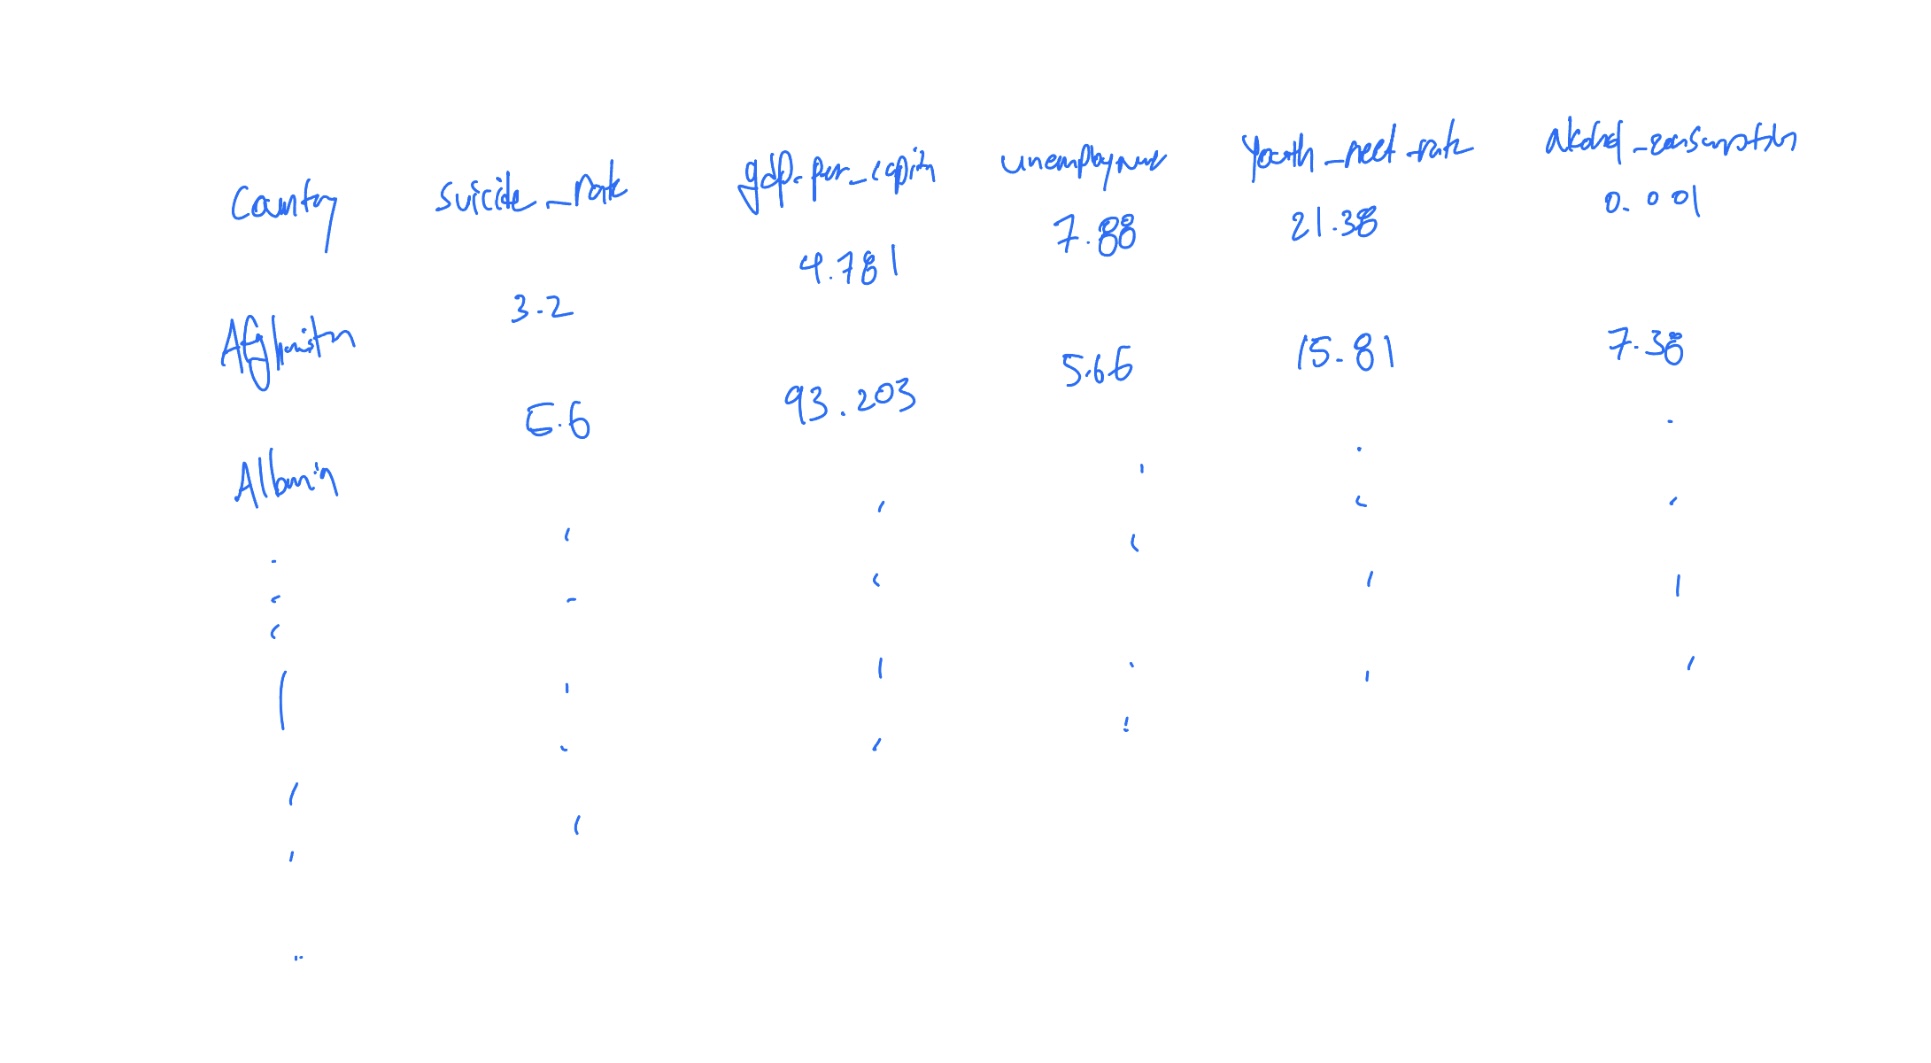 Country suicide_rate gdp_per_capita unemployment youth_neet_rate alcohol_consumption
Afghanistan 3.2 4.781 7.88 21.38 0.001
Albania 5.6 93.203 5.66 15.81 7.38